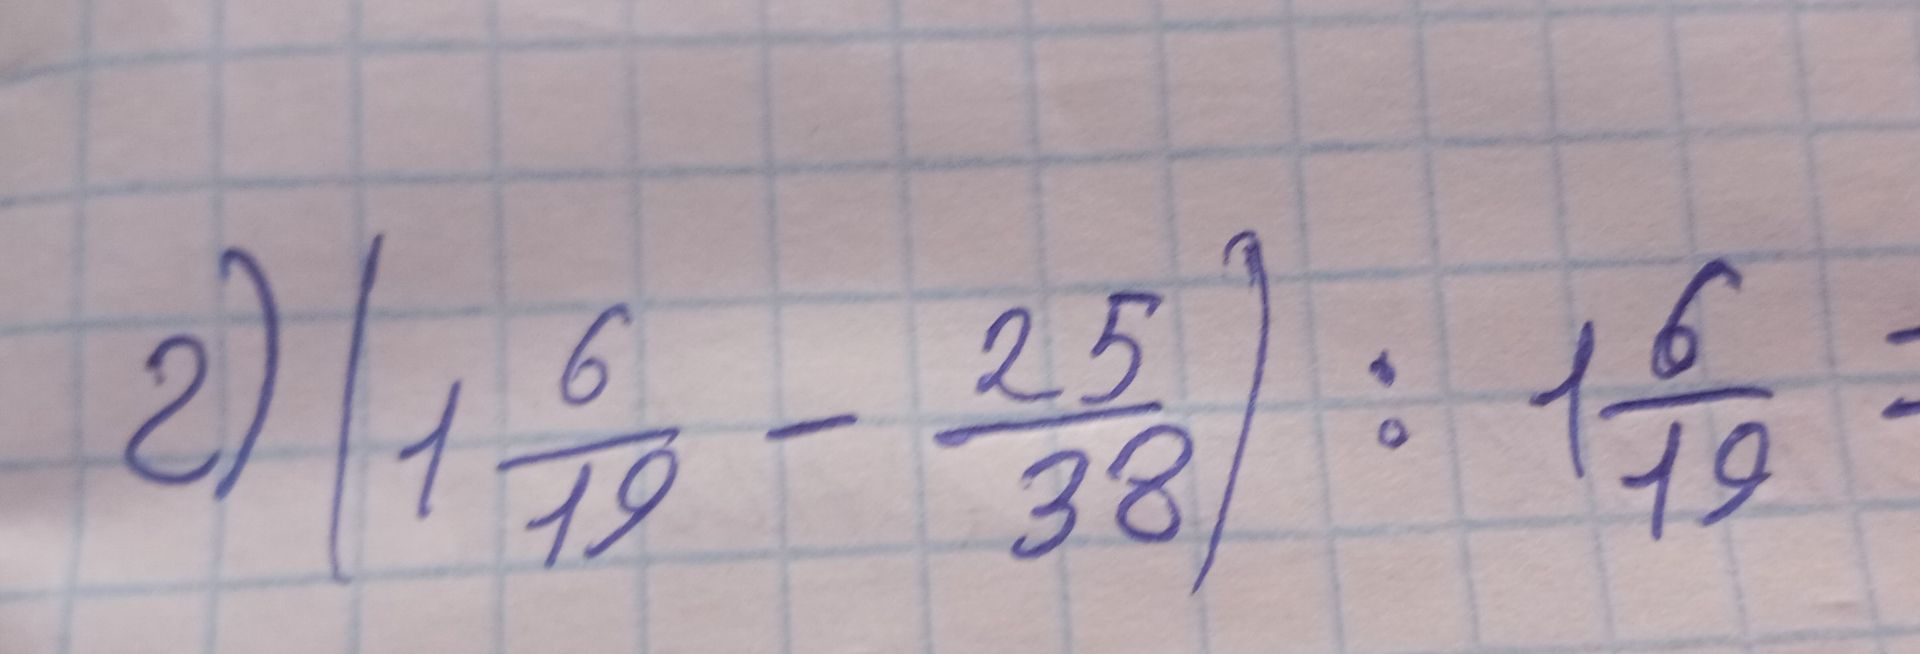 г) (1 6/19 - 25/38) : 1 6/19 =